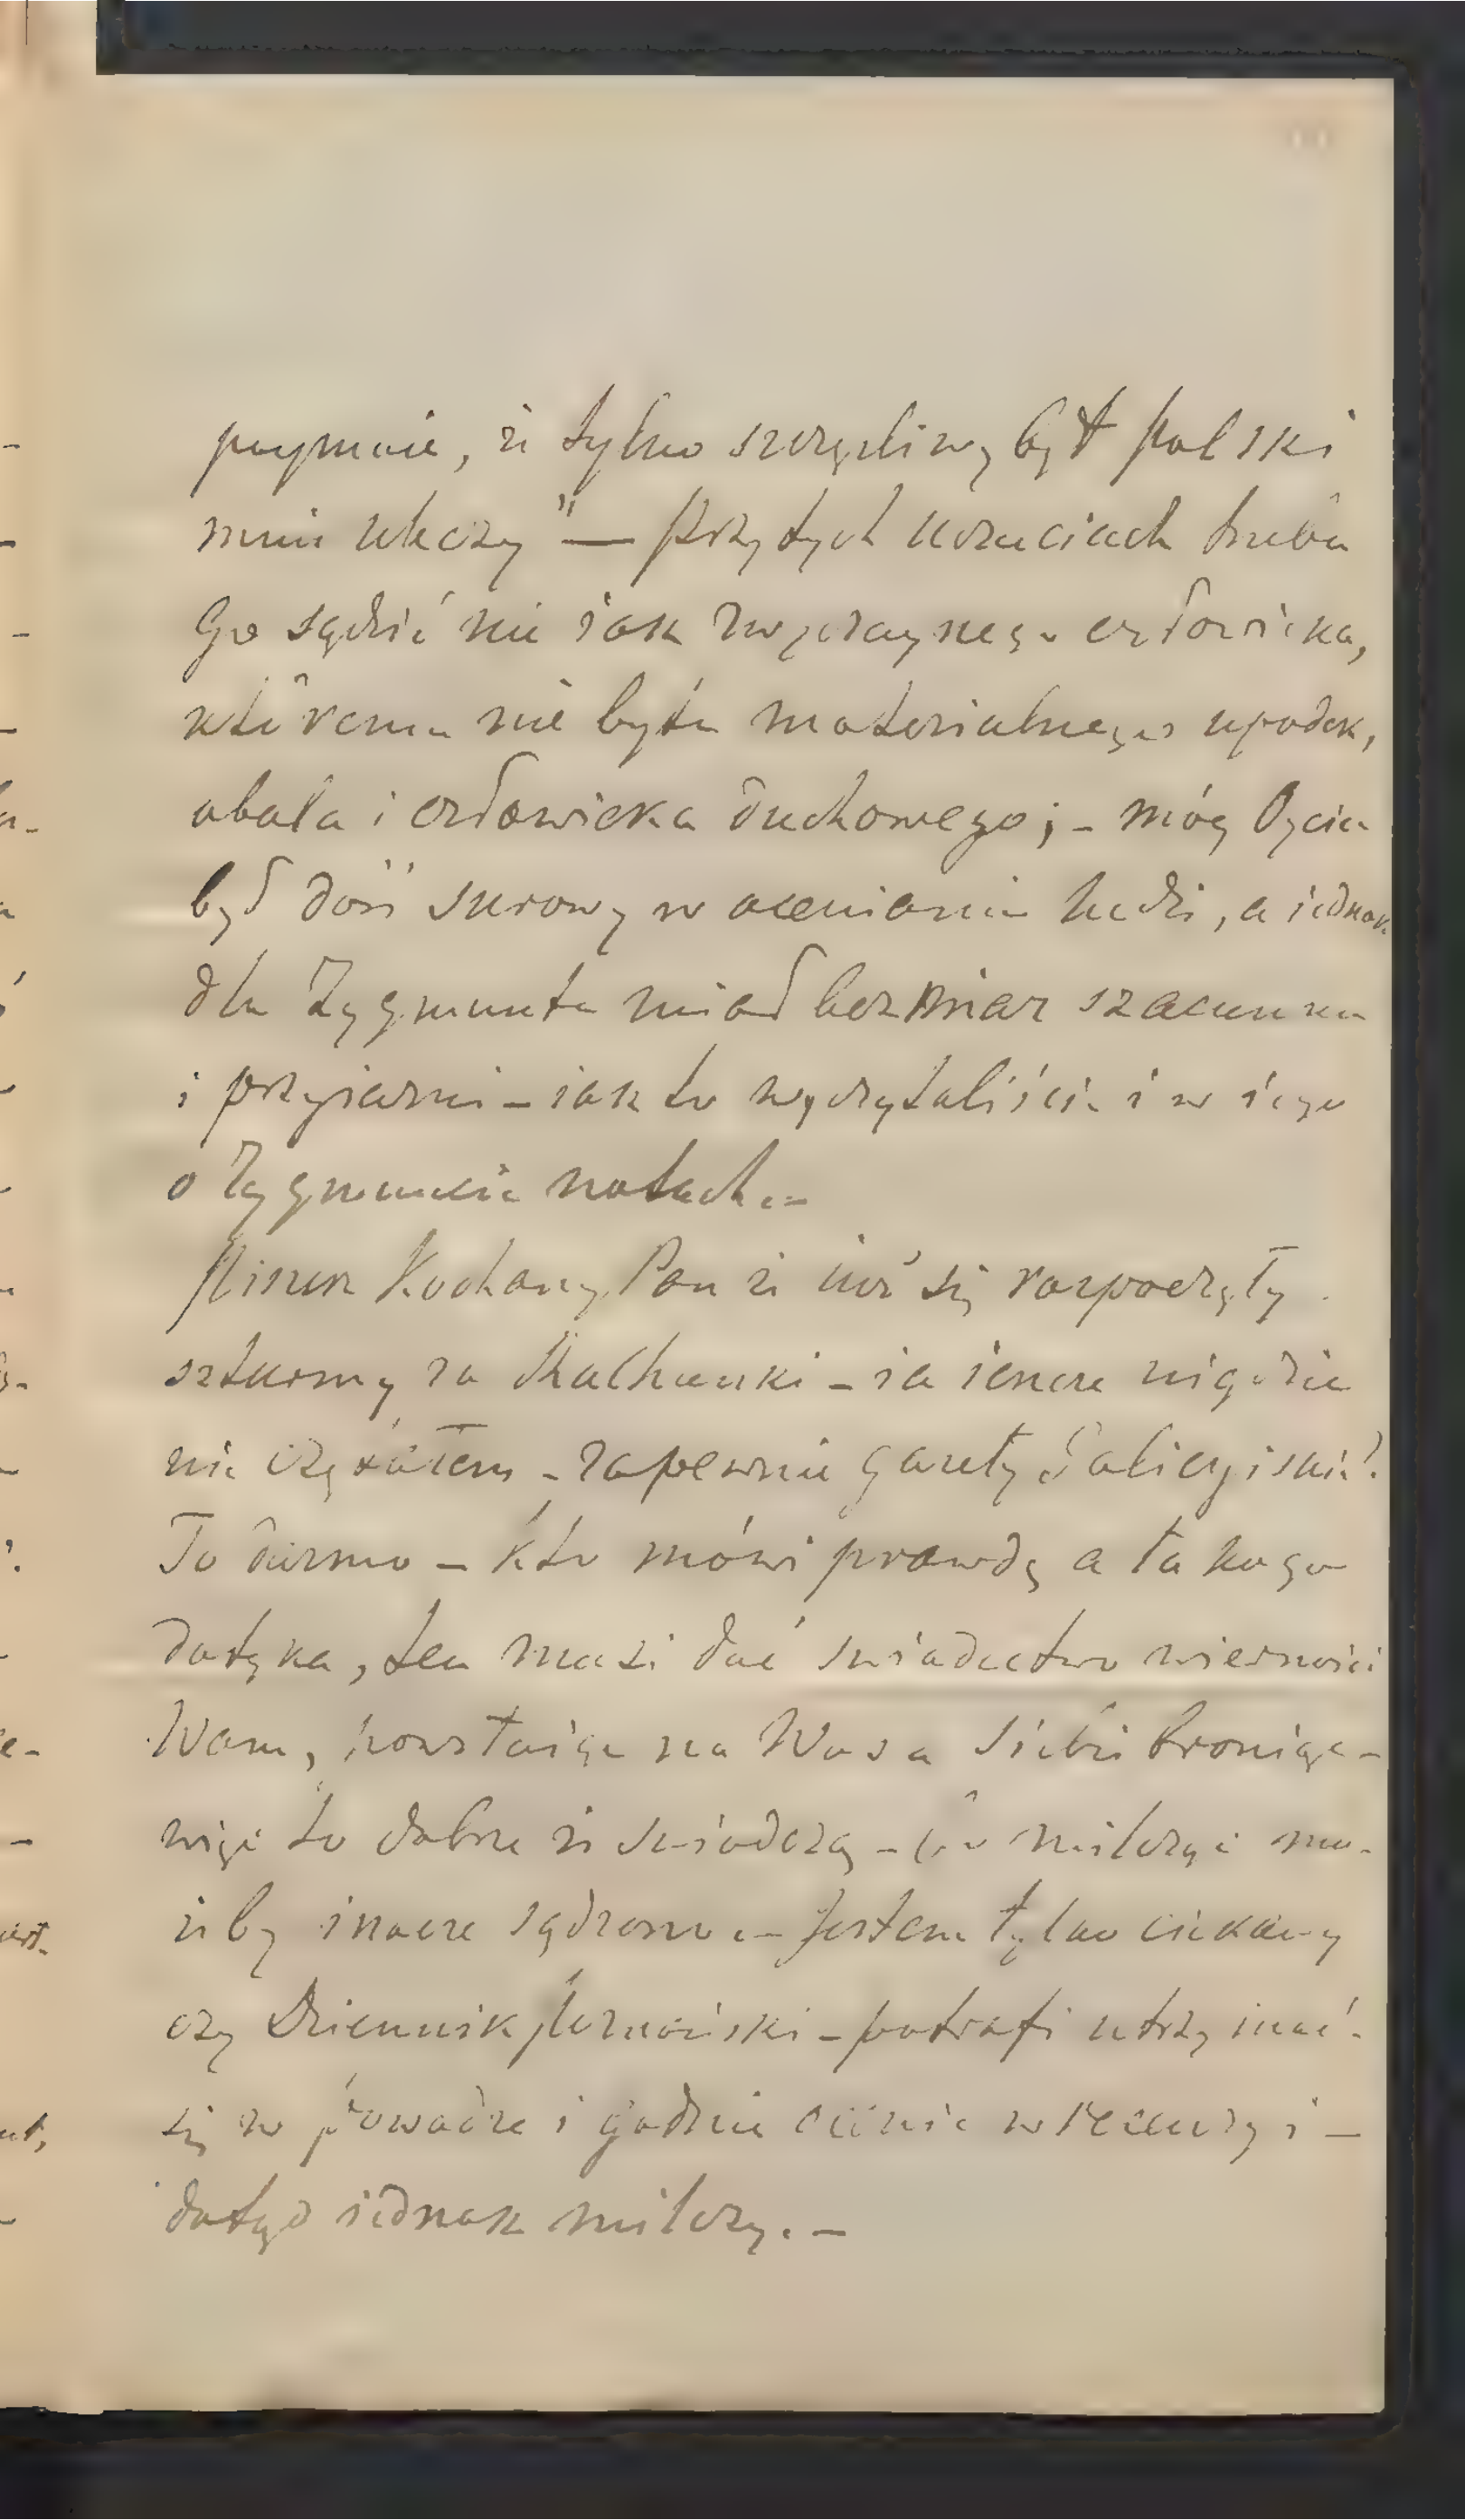 przymnie, że tylko szczęśliwy byt Polski
mnie uleczy" — przy tych uczuciach trzeba
Go sądzić nie jak zwyczaynego człowieka,
któremu nie bytu materialnego upadek,
obala i człowieka duchowego; - móy Oyciec
był dość surowy w ocenianiu ludzi, a iednak
dla Zygmunta miał bezmiar szacunku
i przyiaźni - iak to wyczytaliście i w iego
o Zygmuncie notach. -
Piszesz Kochany Pan że iuż się rozpoczęły
szturmy za Kalkunki - ia ieszcze nigdzie
nie czytałem - zapewnie gazety Galicyiskie?
To darmo - kto mówi prawdę a ta kogo
dotyka, ten musi dać świadectwo wierności
Wam, powstaiąc na Wasa siebie broniąc -
więc to dobrze że świadczą - bo milcząc mo-
żeby inacze sądzono. - Jestem tylko ciekawy
czy Dziennik Poznański - potrafi utrzymać
się w powadze i godnie oceni w recenzyi -
dotąd iednak milczy. -